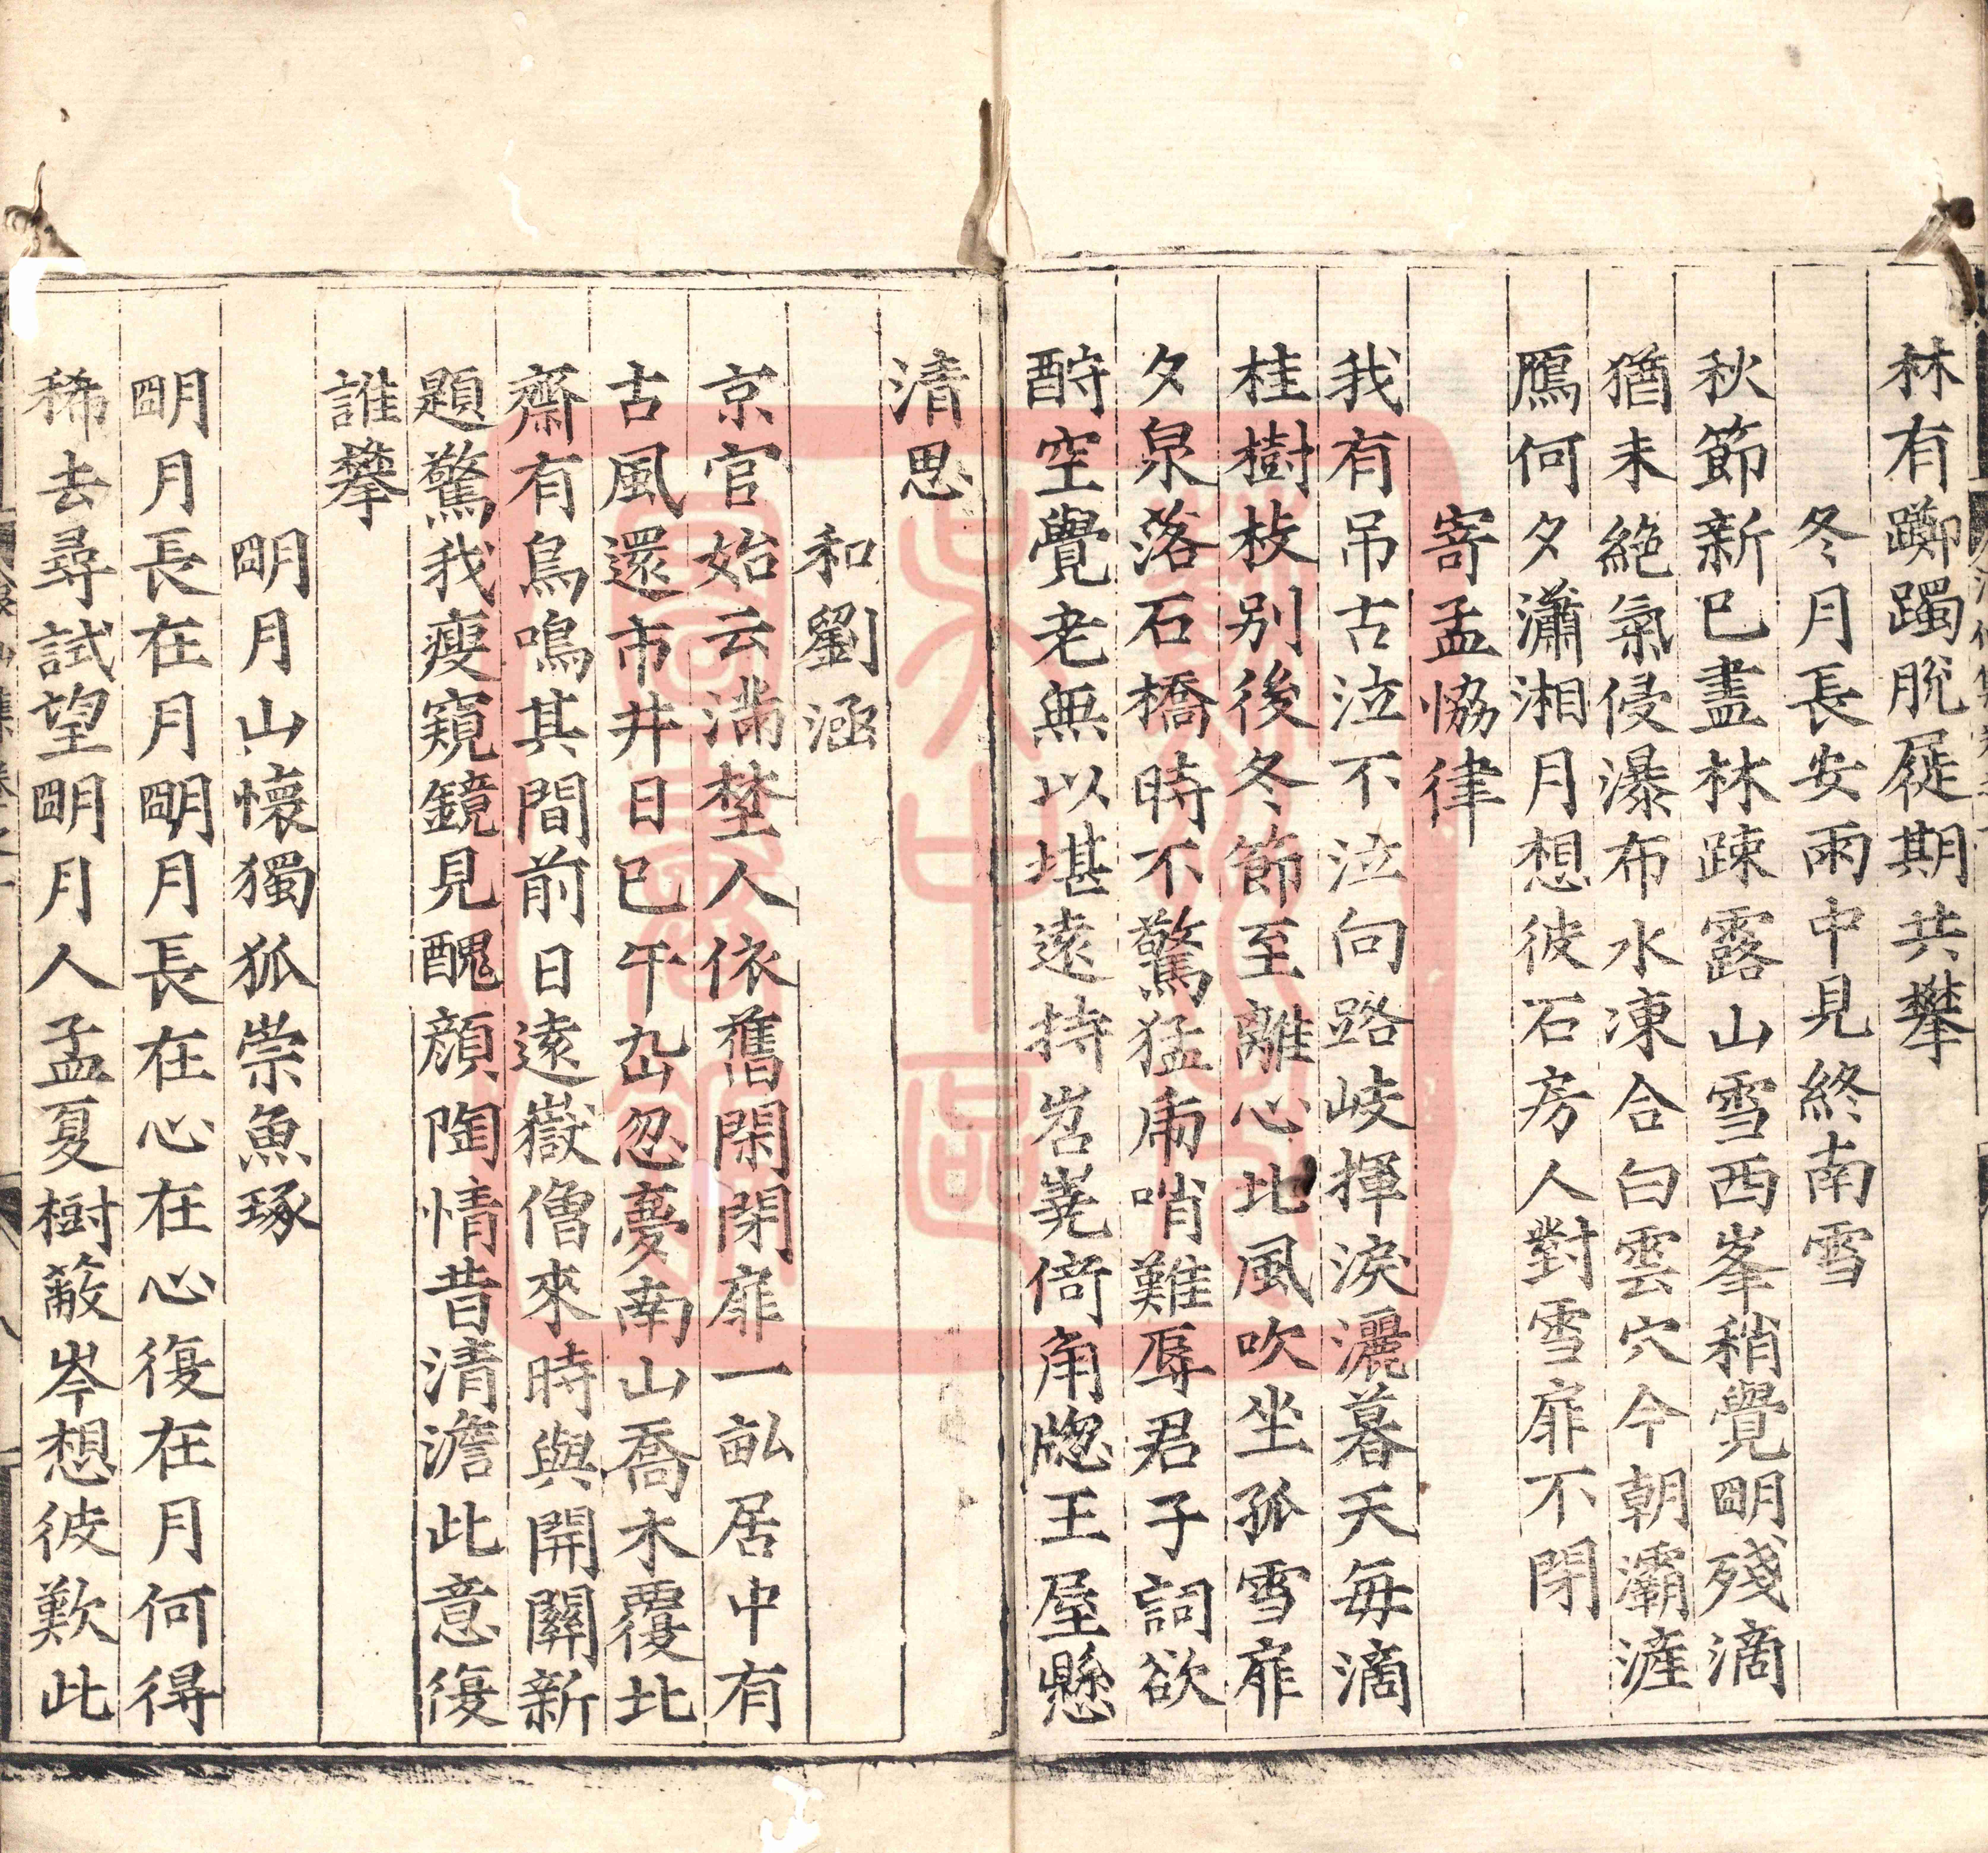 林有躑躅脫屣期共攀
冬月長安雨中見終南雪
秋節新已盡林疎露山雪西峯稍覺明殘滴
猶未絶氣侵瀑布水凍合白雲穴今朝灞滻
鴈何夕瀟湘月想彼石房人對雪扉不閉
寄孟恊律
我有弔古泣不泣向路岐揮淚灑暮天每滴
桂樹枝别後冬節至離心北風吹坐孤雪扉
夕泉落石橋時不驚猛虎哨難辱君子詞欲
酹空覺老無以堪遠持岧嶤倚角牕王屋懸
清思
和劉涵
京官始云滿埜人依舊閑閉扉一畝居中有
古風還市井日已午㘝忽憂南山喬木覆北
齋有鳥鳴其間前日遠嶽僧來時與開關新
題驚我瘦窺鏡見醜顔陶情昔清澹此意復
誰攀
明月山懷獨狐崇魚琢
明月長在月明月長在心在心復在月何得
稀去尋試望明月人孟夏樹蔽岑想彼歎此